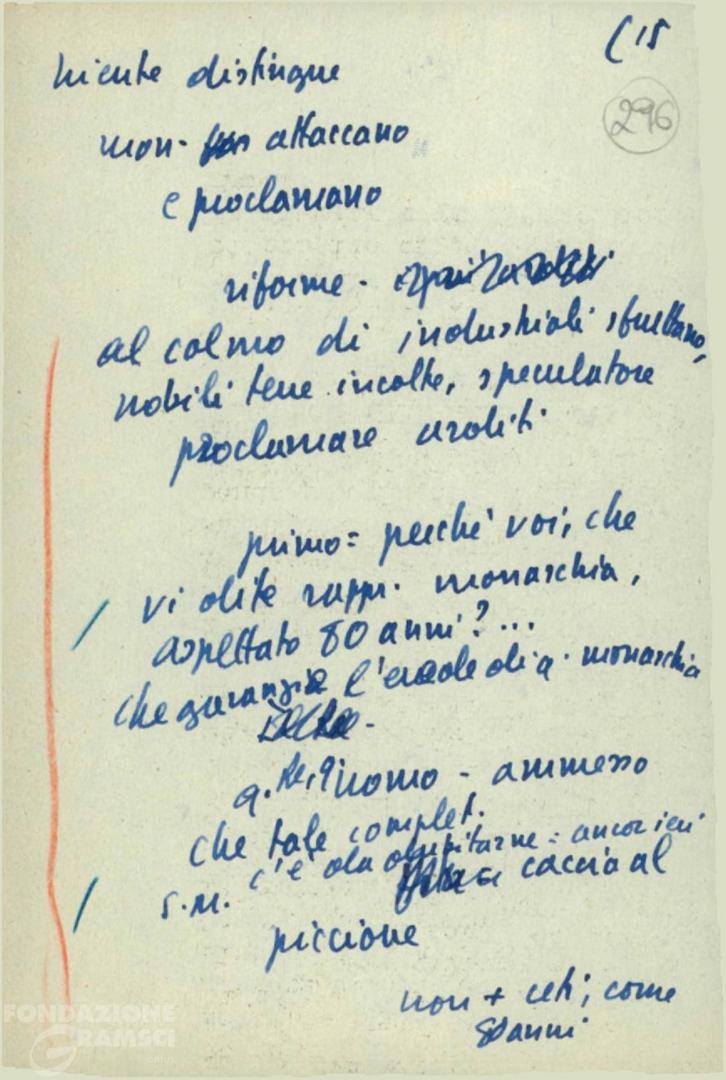 (15
296
niente distingue
mon. attaccano
e proclamano
riforme -
al colmo di industriali sfruttano,
nobili terre incolte, speculatore
proclamare arditi
primo = perché voi, che
vi dite rappr. monarchia,
aspettato 80 anni? ...
che garanzia l'erede di q. monarchia
q. Re, q. uomo - ammesso
che tale complet.
s.m. c'è da = ancor ieri
caccia al
piccione
non + ceti, come
80 anni
FONDAZIONE
GRAMSCI